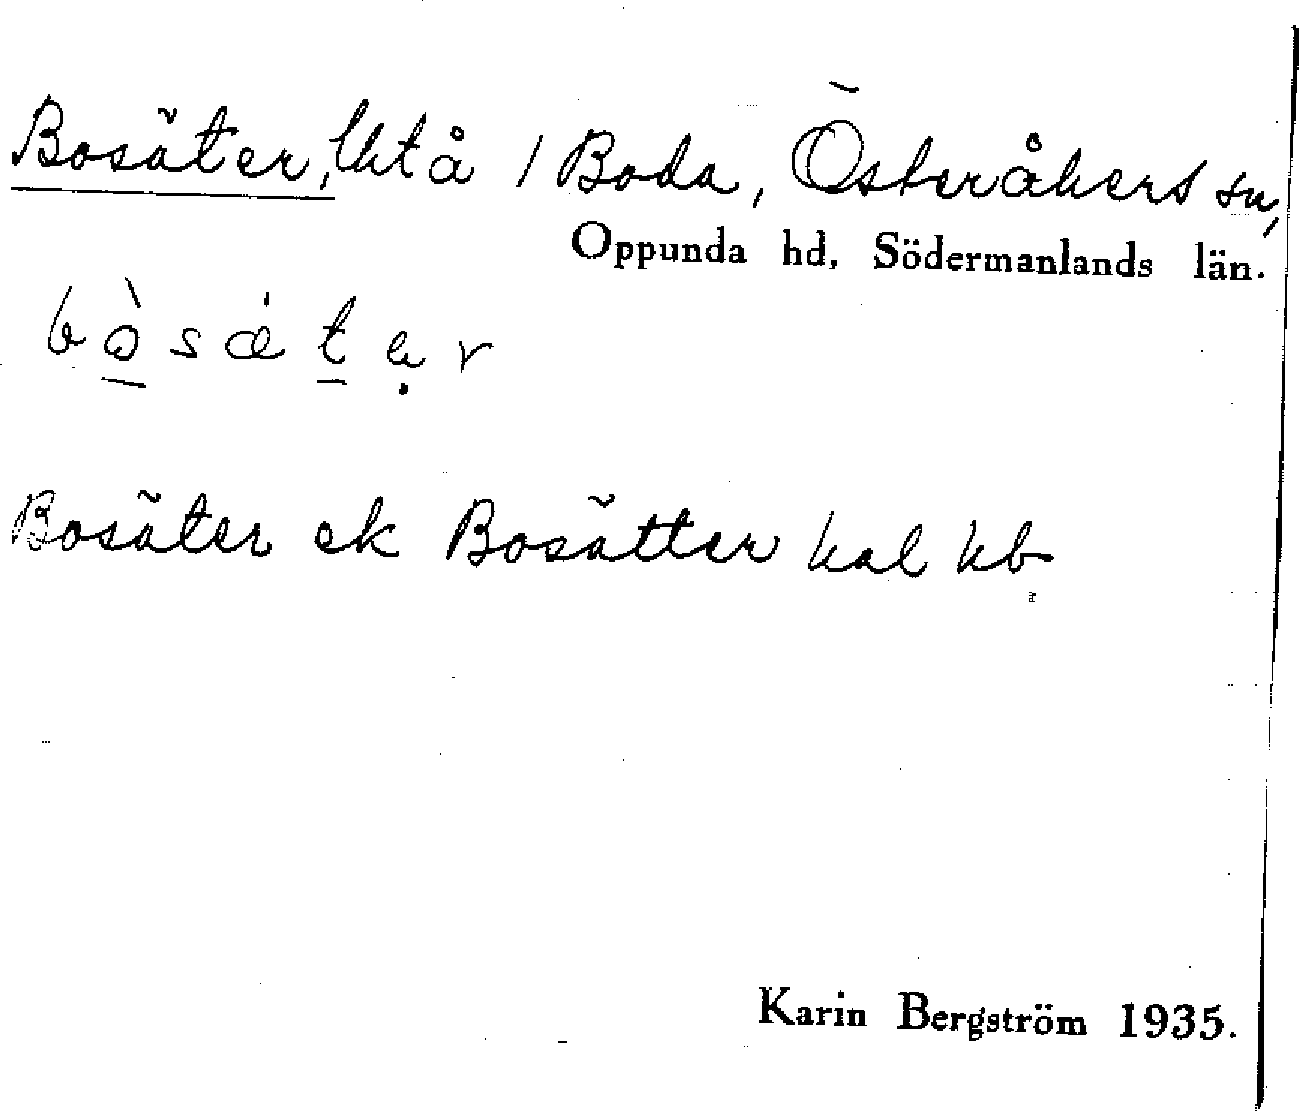 Bosäter, lht å / Boda, Österåkers sn,
Oppunda hd, Södermanlands län.
bòsätẹr
Bosäter ek Bosätter hal kb
Karin Bergström 1935.